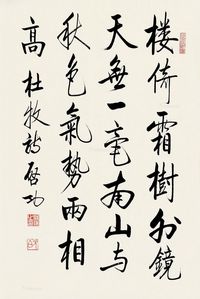 楼倚霜樹外鏡
天無一毫南山与
秋色氣勢兩相
高杜牧詩啓功